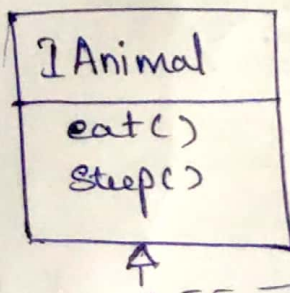 IAnimal
eat()
Sleep()